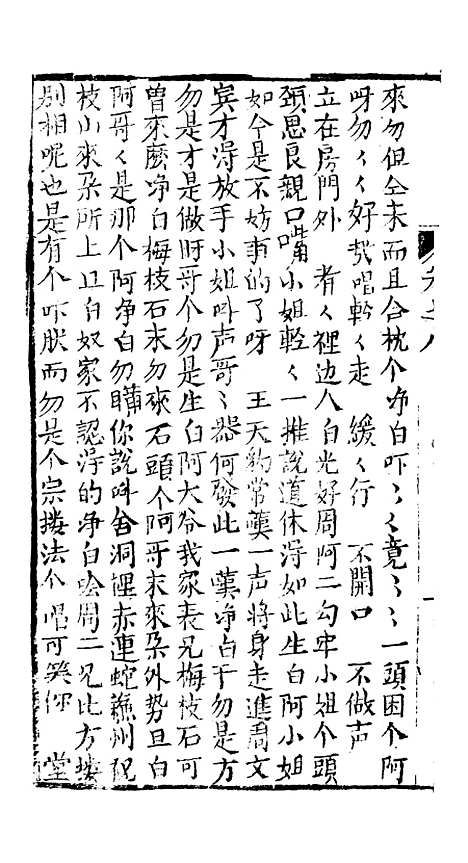 來勿但全未而且合枕个净白吓〻〻竟〻〻一頭困个阿
呀勿〻〻好 唱軽〻走 緩〻行 不開口 不做声
立在房門外 看〻裡边人白光好周阿二勾牢小姐个頭
頚思良親口嘴小姐軽〻一推說道休得如此生白阿小姐
如今是不妨事的了呀 王天豹常嘆一声將身走進周文
宾才得放手小姐呌声哥〻噐何發此一嘆净白于勿是方
勿是才是做時哥个勿是生白阿大爷我家表兄梅枝石可
曾來麽净白梅枝石未勿來石頭个阿哥末來朶外势旦白
阿哥〻是那个阿净白勿瞞你說呌舍洞裡赤連蛇蘓州祝
枝山來朶所上旦白奴家不認得的净白唫周二兄比方搂
别相呢也是有个吓朕而勿是个宗搂法个唱可笑你 堂